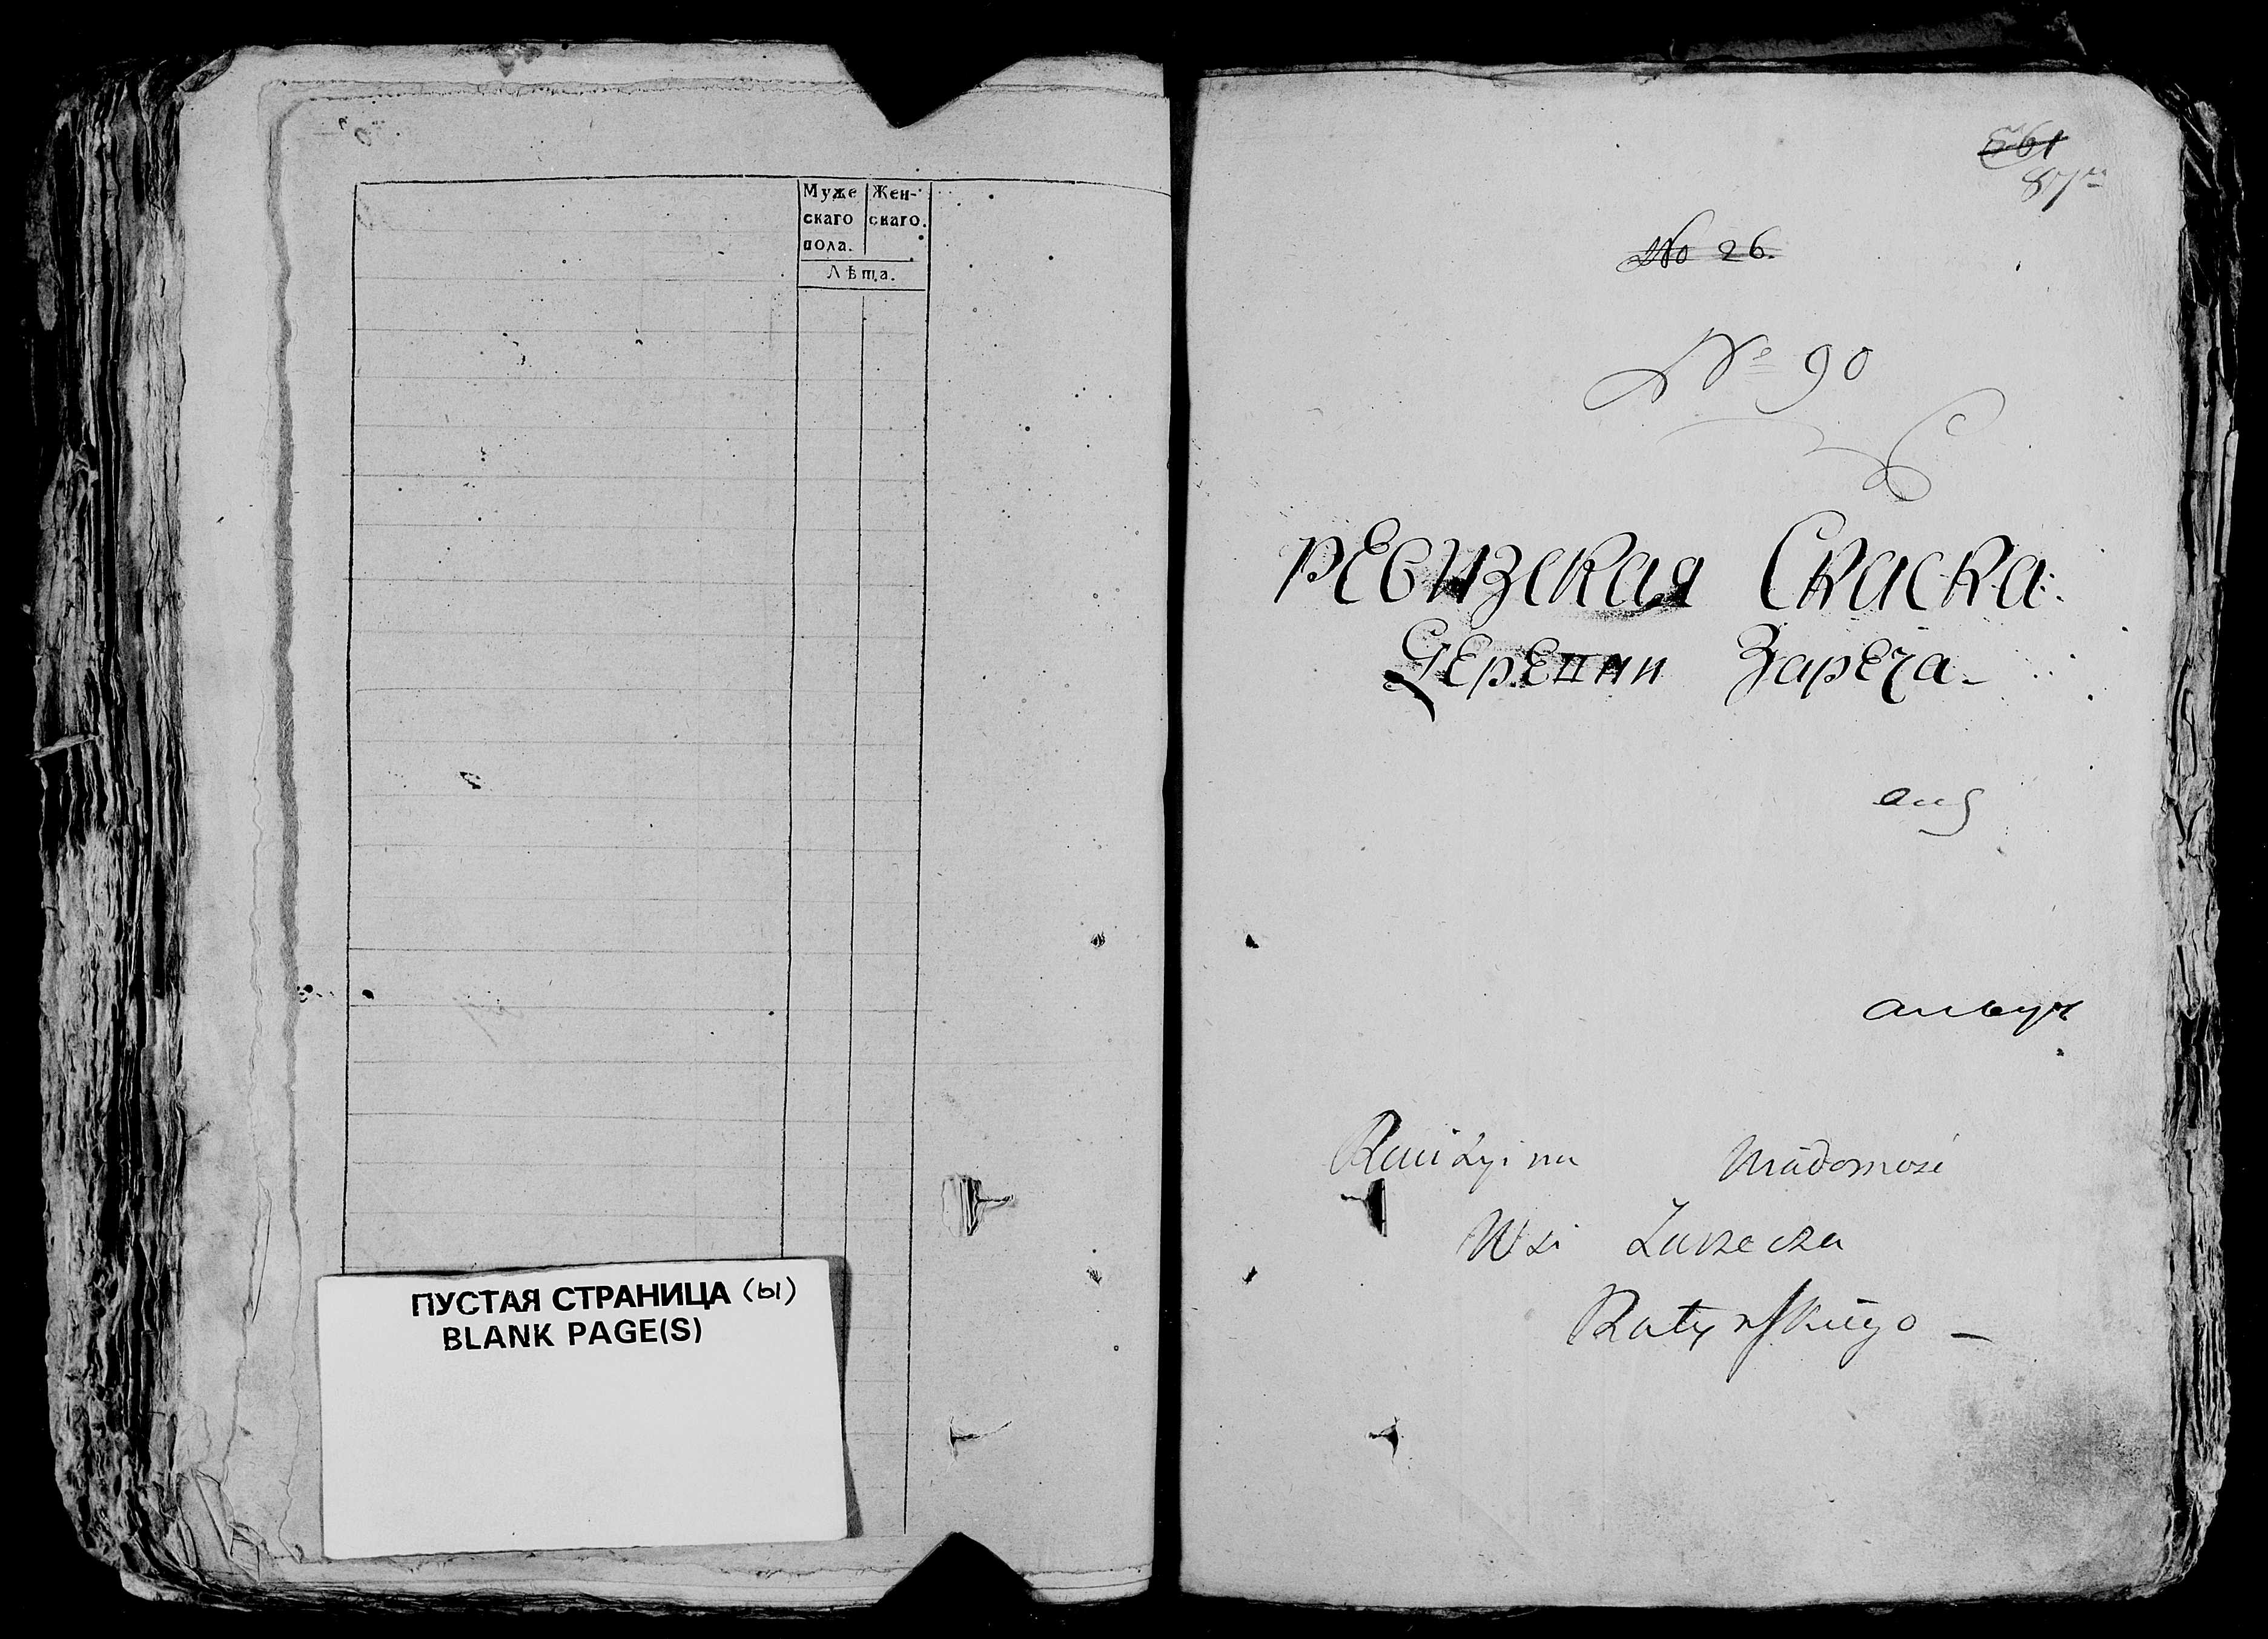 Муже Жен-
скаго скаго.
пола.
Лѣта.
ПУСТАЯ СТРАНИЦА (ы)
BLANK PAGE(S)
561
87
No 26.
№ 90
РЕвизская Скаска.
ДерЕвни Зареча
Rewizyina Wiadomość
Wsi Zarzecza
Ratynskiego